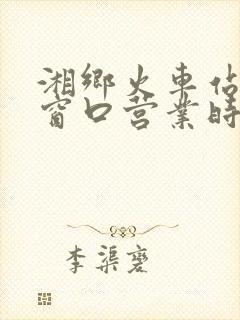 湘鄉火車站
窗口营業時
李渠